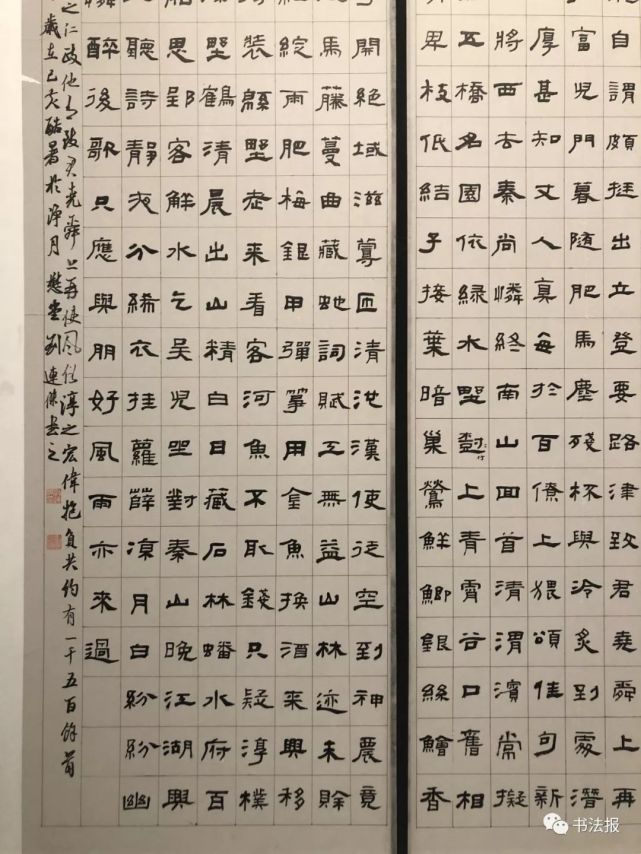 自謂頗挺出立登要路津致君堯舜上再
富兒門暮隨肥馬塵殘杯與冷炙到處潛
厚甚知丈人真每於百僚上猥誦佳句新
將西去秦尚憐終南山回首清渭濱常擬
五橋名園依綠水野對竹上青霄谷口舊相
卑枝低結子接葉暗巢鶯鮮鯽銀絲鱠香
開絕域滋蔓匝清池漢使徒空到神農竟
馬藤蔓曲藏虵詞賦工無益山林迹未賒
綻雨肥梅銀甲彈箏用金魚換酒來興移
裝緜野老來看客河魚不取錢只疑淳樸
野鶴清晨出山精白日藏石林蟠水府百
思郢客解水乞吳兒坐對秦山晚江湖興
聽詩靜夜分絺衣挂蘿薜凉月白紛紛幽
醉後歌只應與朋好風雨亦來過
之仁政他日致君堯舜上再使風俗淳之宏偉抱負共約有一千五百餘首
歲在己亥酷暑於淨月劉連傑書之
书法报